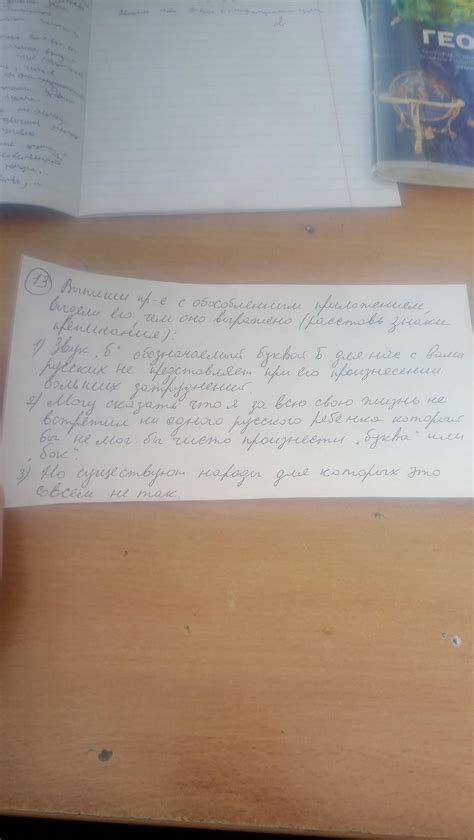 ГЕО
13
Выпиши пр-е с обособленным приложением,
выдели его, чем оно выражено (расставь знаки
препинания):
1) Звук „б" обозначаемый буквой Б для нас с Вами
русских не представляет при его произнесении
больших затруднений.
2) Могу сказать что я за всю свою жизнь не
встретил ни одного русского ребёнка который
бы не мог бы чисто произнести „буква" или
„бок".
3) Но существуют народы для которых это
совсем не так.